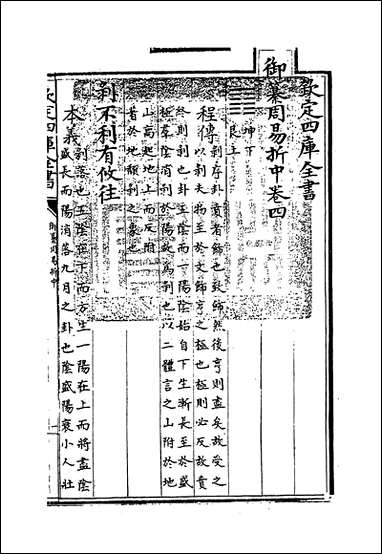 欽定四庫全書
御纂周易折中卷四
坤下
艮上
程傳剥序卦賁者飾也致飾然後亨則盡矣故受之
以剥夫物至於文飾亨之極也極則必反故賁
終則剥也卦五陰而一陽陰始自下生漸長至於盛
極羣陰消剥於陽故為剥也以二體言之山附於地
山高起地上而反附
著於地頽剥之象也
剥不利有攸往
本義剥落也五陰在下而方生一陽在上而將盡陰
盛長而陽消落九月之卦也陰盛陽衰小人壯
欽定四庫全書
御纂周易折中